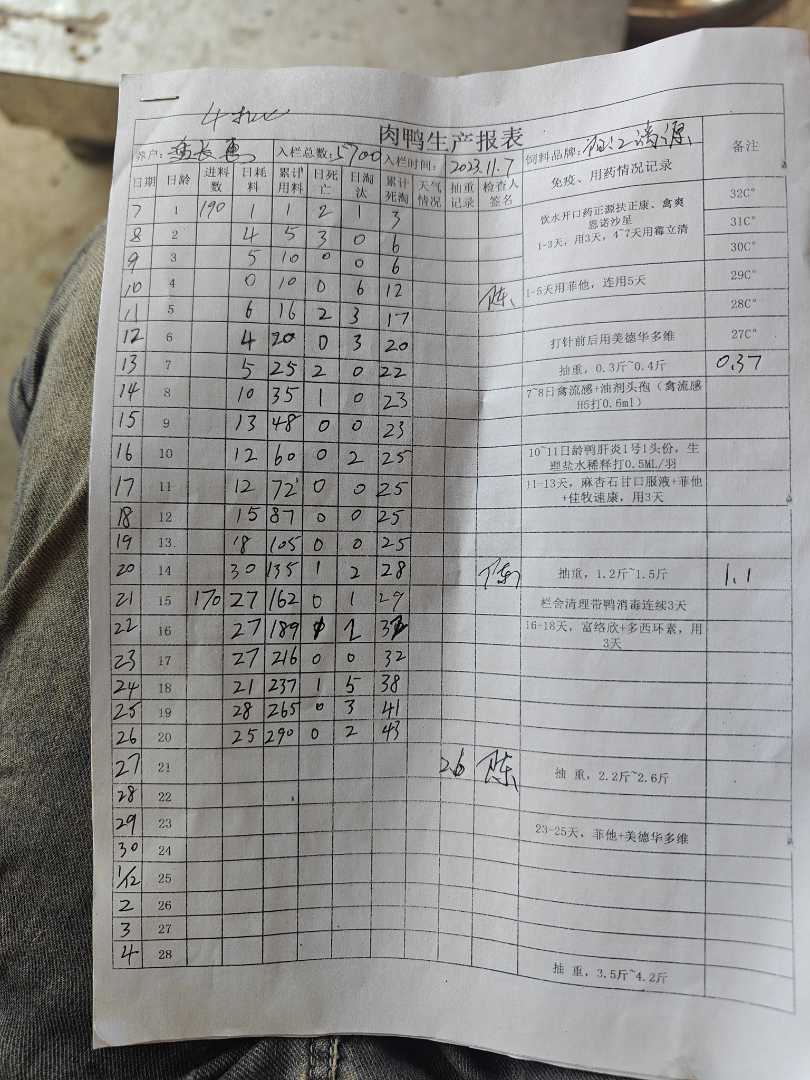 肉鸭生产报表
养户: 入栏总数:5700 入栏时间: 2023.11.7 饲料品牌: 备注
日期 日龄 进料数 日耗料 累计用料 日死亡 日淘汰 累计死淘 天气情况 抽重记录 检查人签名 免疫、用药情况记录
7 1 190 1 1 2 1 3 饮水开口药正源扶正康、禽爽 32C°
恩诺沙星
8 2 4 5 3 0 6 1-3天，用3天，4~7天用霉立清 31C°
9 3 5 10 0 0 6 30C°
10 4 0 10 0 6 12 陈 1-5天用菲他，连用5天 29C°
11 5 6 16 2 3 17 28C°
12 6 4 20 0 3 20 打针前后用美德华多维 27C°
13 7 5 25 2 0 22 抽重，0.3斤~0.4斤 0.37
14 8 10 35 1 0 23 7~8日禽流感+油剂头孢（禽流感
H5打0.6ml）
15 9 13 48 0 0 23
16 10 12 60 0 2 25 10~11日龄鸭肝炎1号1头份，生
理盐水稀释打0.5ML/羽
17 11 12 72 0 0 25 11-13天，麻杏石甘口服液+菲他
+佳牧速康，用3天
18 12 15 87 0 0 25
19 13 18 105 0 0 25
20 14 30 135 1 2 28 陈 抽重，1.2斤~1.5斤 1.1
21 15 170 27 162 0 1 29 栏舍清理带鸭消毒连续3天
22 16 27 189 16-18天，富络欣+多西环素，用
3天
23 17 27 216 0 0 32
24 18 21 237 1 5 38
25 19 28 265 0 3 41
26 20 25 290 0 2 43
27 21 2.6 陈 抽 重，2.2斤~2.6斤
28 22
29 23 23-25天，菲他+美德华多维
30 24
1/12 25
2 26
3 27
4 28 抽 重，3.5斤~4.2斤